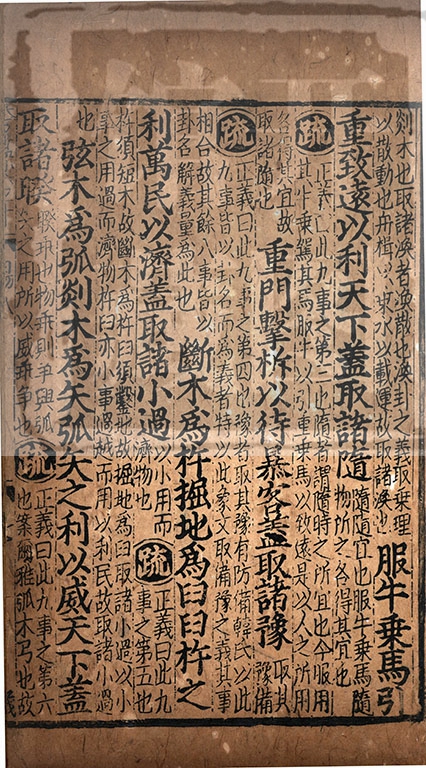 剡木也取諸渙者渙散也渙卦之義取乘理
以散動也舟楫以乘水以載運故取諸渙也
服牛乘馬引
重致遠以利天下蓋取諸隨
隨隨宜也服牛乘馬隨
物所之各得其宜也
疏
正義曰此九事之第三也隨者謂隨時之所宜也今服用
其牛乘駕其馬服牛以引重乘馬以致遠是以人之所用
各得其宜故
取諸隨也
重門擊柝以待暴客蓋取諸豫
取其
豫備
疏
正義曰此九事之第四也豫者取其豫有防備韓氏以此
九事皆以卦名而為義者特以此象文取備豫之義其事
相合故其餘八事皆以
卦名解義量為此也
斷木為杵掘地為臼臼杵之
利萬民以濟蓋取諸小過
以小用而
濟物也
疏
正義曰此九
事之第五也
杵須短木故斷木為杵臼須鑿地故掘地為臼取諸小過以小
事之用過而濟物杵臼亦小事過越而用以利民故取諸小過
也
弦木為弧剡木為矢弧矢之利以威天下蓋
取諸睽
睽乖也物乖則爭興弧
矢之用所以威乖爭也
疏
正義曰此九事之第六
也案爾雅弧木弓也故